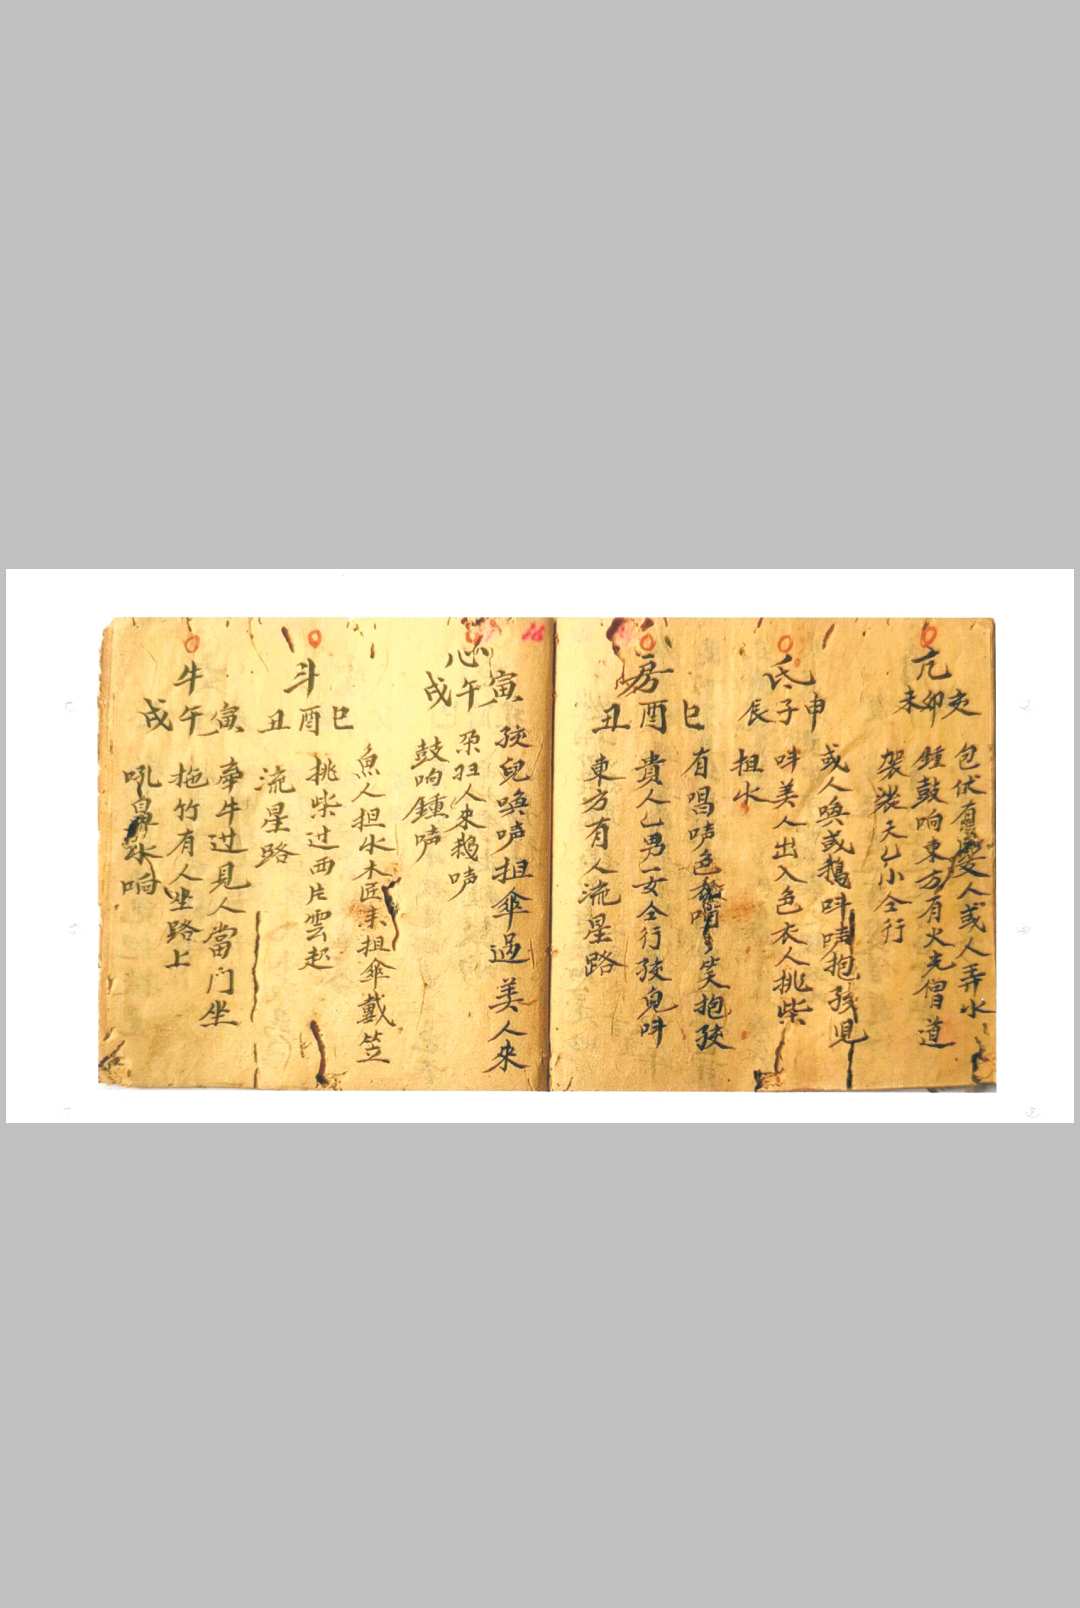 亢
亥卯未
包伏有 人或人弄水
鍾鼓响東方有火光僧道
袈裟大乙小仝行
氐
申子辰
或人喚或鵝呌声抱孩児
呌美人出入色衣人挑柴
担水
房
巳酉丑
有唱声色衣 笑抱孩
貴人乙男一女仝行孩兒呌
東方有人流星路
心
寅午戌
孩兒喚声担傘過美人來
人來鵝声
鼓响鍾声
斗
巳酉丑
魚人担水木匠来担傘戴笠
挑柴过西片雲起
流星路
牛
寅午戌
牽牛过見人當门坐
拖竹有人坐路上
吼 水响